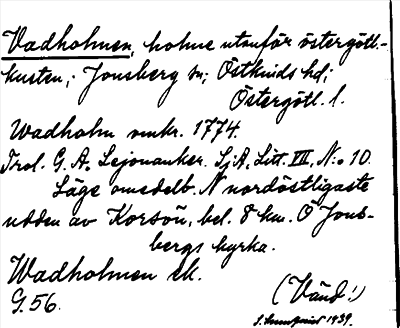 Vadholmen, holme utanför östergötl.-
kusten, Jonsberg sn; Östkinds hd;
Östergötl. l.
Wadholm omkr. 1774.
Trol. G. A. Lejonanker. SjA, Litt. VIII, N:o 10.
Läge omedelb. N nordöstligaste
udden av Korsön, bel. 8 km. O Jons-
bergs kyrka.
Wadholmen ek.
G. 56.
(Vänd!)
1939.